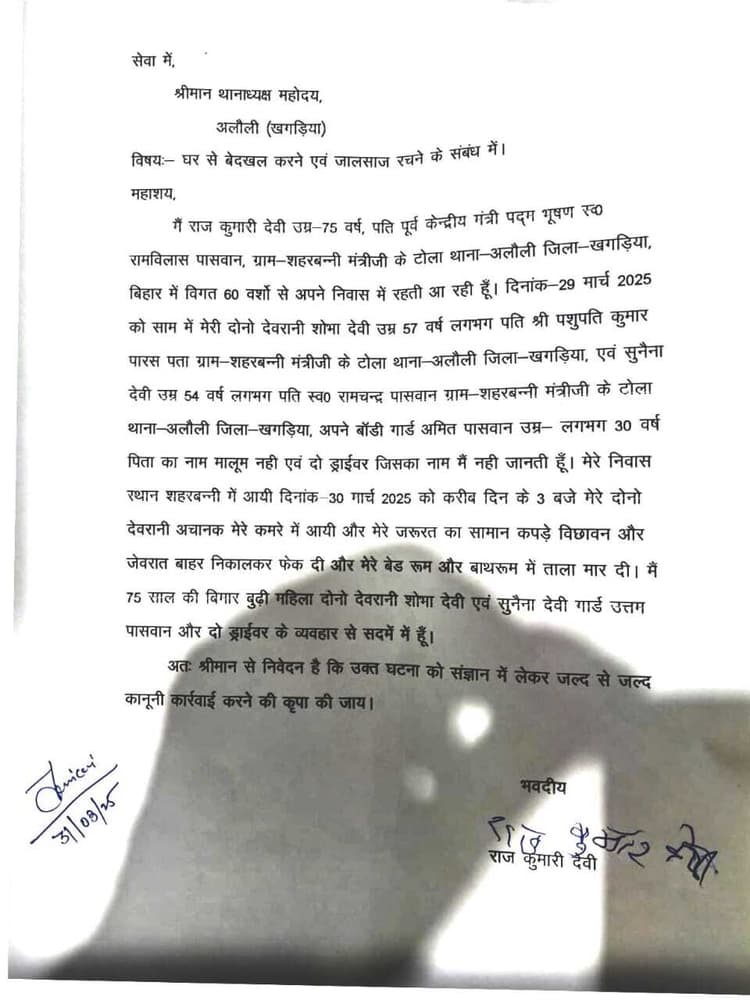 सेवा में,
श्रीमान थानाध्यक्ष महोदय,
अलौली (खगड़िया)
विषयः– घर से बेदखल करने एवं जालसाज रचने के संबंध में।
महाशय,
मैं राज कुमारी देवी उम्र–75 वर्ष, पति पूर्व केन्द्रीय मंत्री पद्म भूषण स्व०
रामविलास पासवान, ग्राम–शहरबन्नी मंत्रीजी के टोला थाना–अलौली जिला–खगड़िया,
बिहार में विगत 60 वर्शो से अपने निवास में रहती आ रही हूँ। दिनांक–29 मार्च 2025
को साम में मेरी दोनो देवरानी शोभा देवी उम्र 57 वर्ष लगभग पति श्री पशुपति कुमार
पारस पता ग्राम–शहरबन्नी मंत्रीजी के टोला थाना–अलौली जिला–खगड़िया, एवं सुनैना
देवी उम्र 54 वर्ष लगभग पति स्व० रामचन्द्र पासवान ग्राम–शहरबन्नी मंत्रीजी के टोला
थाना–अलौली जिला–खगड़िया, अपने बॉडी गार्ड अमित पासवान उम्र– लगभग 30 वर्ष
पिता का नाम मालूम नही एवं दो ड्राईवर जिसका नाम मैं नही जानती हूँ। मेरे निवास
स्थान शहरबन्नी में आयी दिनांक–30 मार्च 2025 को करीब दिन के 3 बजे मेरे दोनो
देवरानी अचानक मेरे कमरे में आयी और मेरे जरूरत का सामान कपड़े विछावन और
जेवरात बाहर निकालकर फेक दी और मेरे बेड रूम और बाथरूम में ताला मार दी। मैं
75 साल की बिगार बुढ़ी महिला दोनो देवरानी शोभा देवी एवं सुनैना देवी गार्ड उत्तम
पासवान और दो ड्राईवर के व्यवहार से सदमें में हूँ।
अतः श्रीमान से निवेदन है कि उक्त घटना को संज्ञान में लेकर जल्द से जल्द
कानूनी कार्रवाई करने की कृपा की जाय।
भवदीय
राज कुमारी देवी
31/03/25